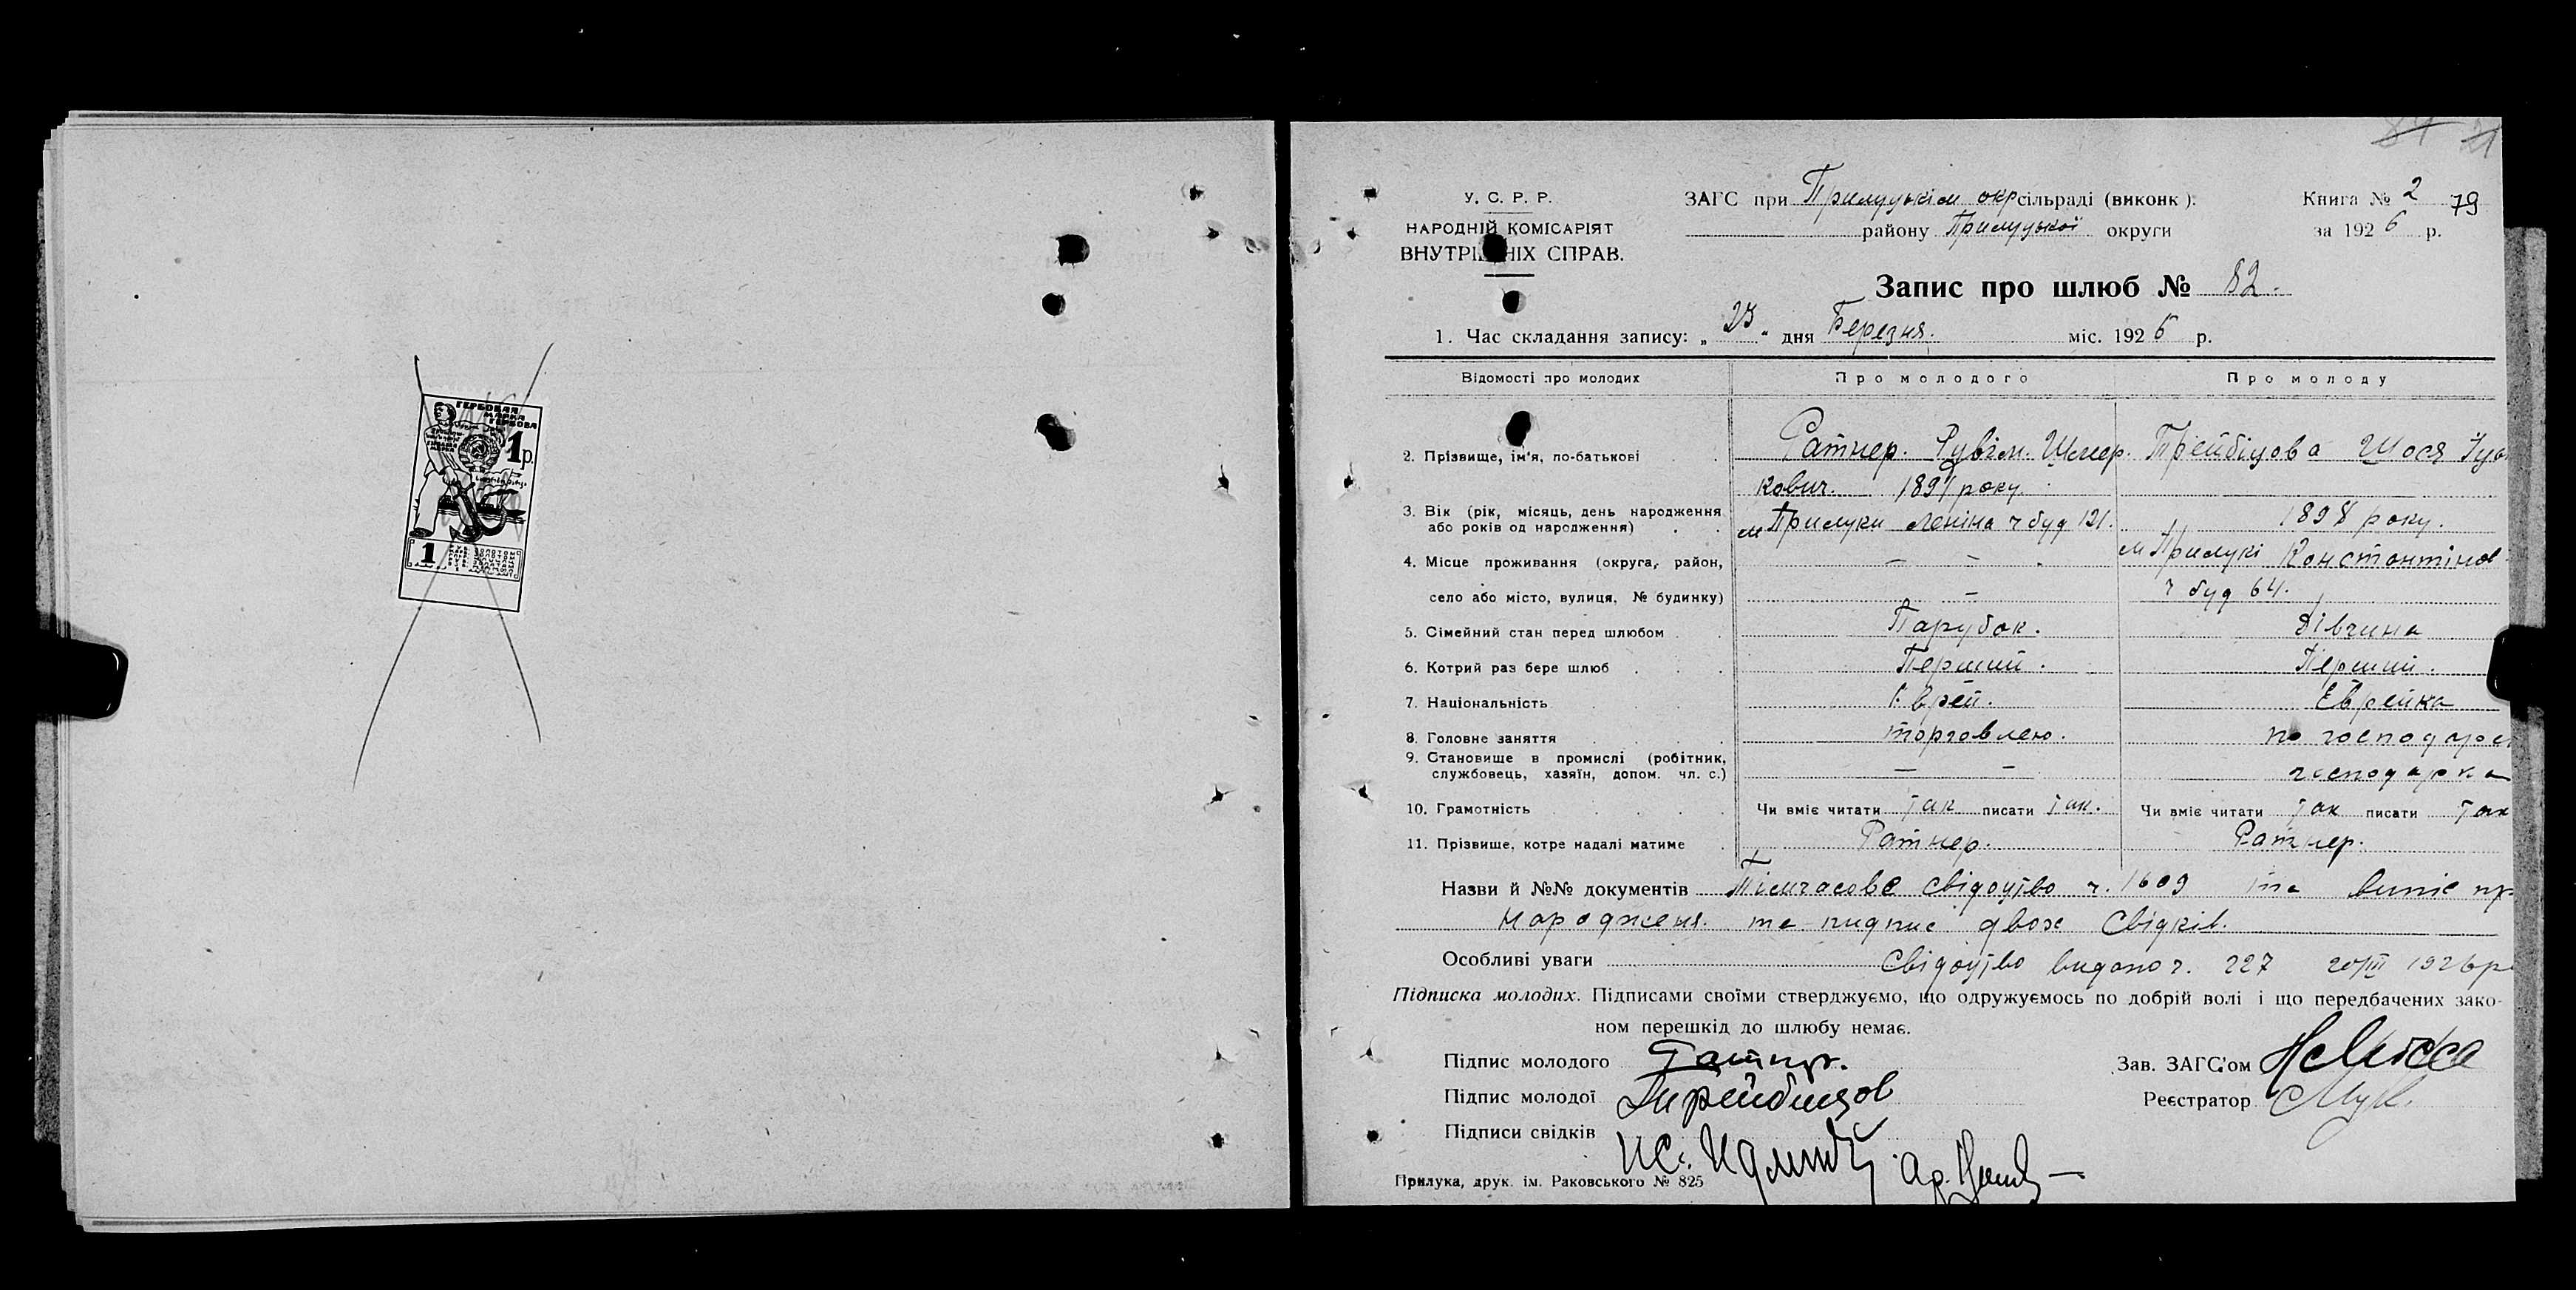 ГЕРБОВАЯ
МАРКА
ГЕРБОВА
1 р.
1
84 21
У. С. Р. Р.
НАРОДНІЙ КОМІСАРІЯТ
ВНУТРІШНІХ СПРАВ.
ЗАГС при Прилуцькім окрсільраді (виконк).
району Прилуцької округи
Книга № 2 79
за 1926 р.
Запис про шлюб № 82.
1. Час складання запису: „ 23 " дня Березня. міс. 1926 р.
Відомості про молодих Про молодого Про молоду
2. Прізвище, ім'я, по-батькові Ратнер. Рувім. Шмер. Трейбіцова Шося
кович. 1891 року.
3. Вік (рік, місяць, день народження
або років од народження)
м Прилуки Леніна ч буд 121. 1898 року.
4. Місце проживання (округа, район,
село або місто, вулиця, № будинку)
— — м Прилукі Константінов
— ч буд 64.
5. Сімейний стан перед шлюбом Парубок. Дівчина
6. Котрий раз бере шлюб Перший. Перший.
7. Національність Єврей. Єврейка
8. Головне заняття торговлею. по господарс
9. Становище в промислі (робітник,
службовець, хазяїн, допом. чл. с.) — — господарка
10. Грамотність Чи вміє читати так писати так. Чи вміє читати так писати так
11. Прізвище, котре надалі матиме Ратнер. Ратнер.
Назви й №№ документів Тімчасове свідоцтво ч. 1609 та випіс пр
народженя. та пидпис двох свідків.
Особливі уваги Свідоцтво видано ч. 227 20/III 1926 р
Підписка молодих. Підписами своїми стверджуємо, що одружуємось по добрій волі і що передбачених зако-
ном перешкід до шлюбу немає.
Підпис молодого Ратнер.
Зав. ЗАГС'ом
Підпис молодої Трейбицов
Реєстратор
Підписи свідків
Прилука, друк. ім. Раковського № 825